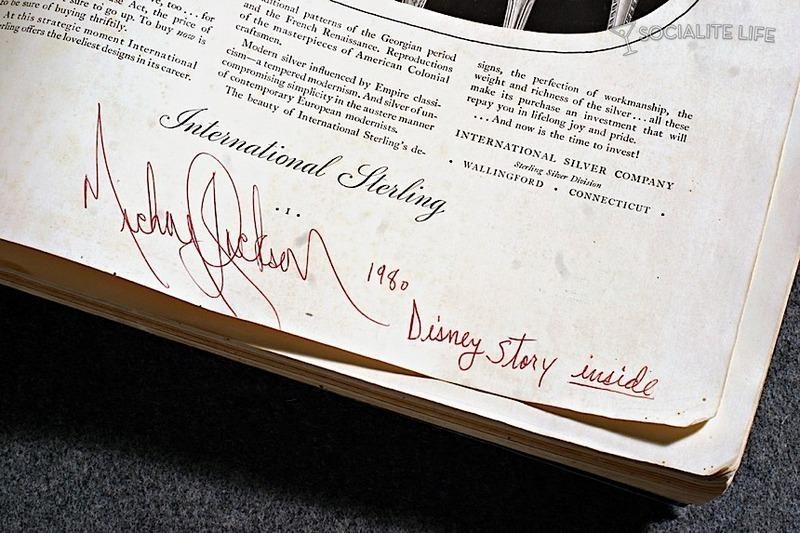 SOCIALITE LIFE
too... for
Act, the price of
sure to go up. To buy now is
to be sure of buying thriftily.
At this strategic moment International
offers the loveliest designs in its career.
patterns of the Georgian period
and the French Renaissance. Reproductions
of the masterpieces of American Colonial
craftsmen.
Modern silver influenced by Empire classi-
cism—a tempered modernism. And silver of un-
compromising simplicity in the austere manner
of contemporary European modernists.
The beauty of International Sterling's de-
signs, the perfection of workmanship, the
weight and richness of the silver... all these
make its purchase an investment that will
repay you in lifelong joy and pride.
... And now is the time to invest!
INTERNATIONAL SILVER COMPANY
Sterling Silver Division
· WALLINGFORD · CONNECTICUT ·
International Sterling
· I ·
Michael Jackson
1980
Disney Story inside